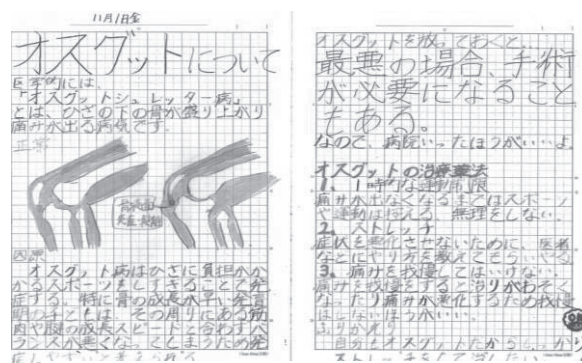 11月1日金
オスグットについて
医学的には、
「オスグットシュレッター病」
とは、ひざの下の骨が盛り上がり
痛みが出る病気です。
正常
原因
オスグット病はひざに負担がか
かるスポーツをしすぎることで発
症する。特に骨の成長が早い発育
期の子どもは、その周りにある筋
肉や腱の成長スピードと合わずバ
ランスが悪くなってしまうため発
症しやすいと考えられて
オスグットを放っておくと…
最悪の場合、手術
が必要になること
もある。
なので、病院いったほうがいいよ。
オスグットの治療薬法
1、1時的な運動制限
痛みが出なくなるまではスポーツ
や運動は控える、無理をしない。
2、ストレッチ
症状を悪化させないために、医者
などにやり方を教えてもらいやる。
3、痛みを我慢してはいけない。
痛みを我慢をすると治りがわそく
なったり痛みが悪化するため我慢
はしないほうがいい。
ふりかえり
自分もオスグットだからしっか
ストレッチをして治した